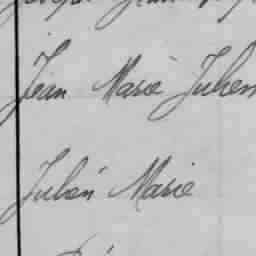 Jean Marie Julien
Julien Marie